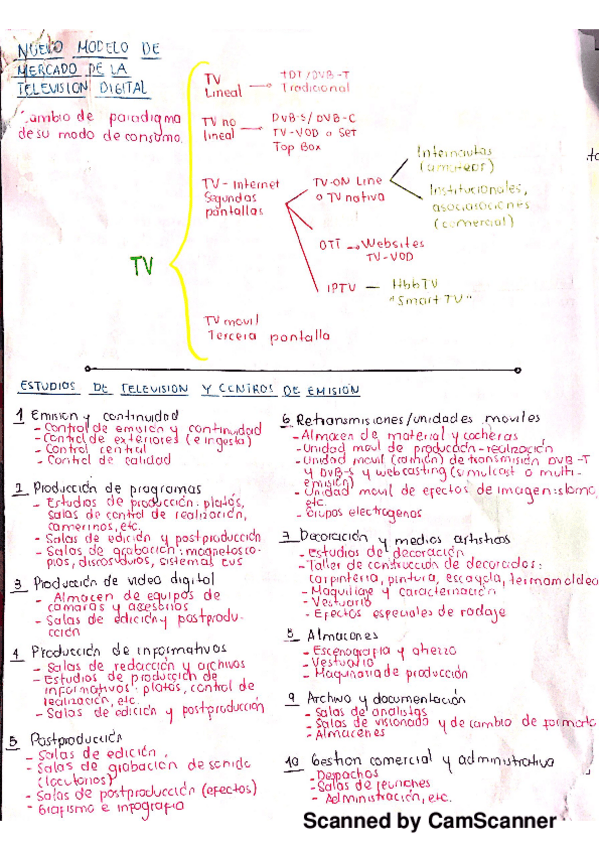 NUEVO MODELO DE
MERCADO DE LA
TELEVISION DIGITAL
Cambio de paradigma
de su modo de consumo.
TV
TV
Lineal
TDT/DVB-T
Tradicional
TV no
lineal
DVB-S/DVB-C
TV-VOD o Set
Top Box
TV-Internet
Segundas
pantallas
TV-ON Line
o TV nativa
Internautas
(amateor)
Institucionales,
asociasociones
(comercial)
OTT → Websites
TV-VOD
IPTV — HbbTV
"Smart TV"
TV movil
Tercera pantalla
ESTUDIOS DE TELEVISION Y CENTROS DE EMISIÓN
1 Emision y continuidad
- Control de emision y continuidad
- Control de exteriores (e ingesta)
- Control central
- Control de calidad
2 Producción de programas
- Estudios de producción: platós,
salas de control de realización,
camerinos, etc.
- Salas de edición y postproducción
- Salas de grabación: magnetosco-
pios, discosduros, sistema
3 Producción de video digital
- Almacen de equipos de
camaras y accesorios
- Salas de edición y postprodu-
cción
4 Producción de informativos
- Salas de redacción y archivos
- Estudios de producción de
informativos: platós, control de
realización, etc.
- Salas de edición y postproducción
5 Postproducción
- Salas de edición.
- Salas de grabación de sonido
(locutorios)
- Salas de postproducción (efectos)
- Grafismo e infografia
6 Retransmisiones/unidades moviles
- Almacen de material y cocheras
- Unidad movil de producción-realización
- Unidad movil (camión) de transmisión DVB-T
y DVB-S y webcasting (simulcast o multi-
emisión)
- Unidad movil de efectos de imagen:
etc.
- Grupos electrogenos
7 Decoración y medios artisticos
- Estudios de decoración
- Taller de construcción de decorados:
carpinteria, pintura, escayola, termomoldeo
- Maquillaje y caracterización
- Vestuario
- Efectos especiales de rodaje
8 Almacenes
- Escenografia y atrezzo
- Vestuario
- Maquinaria de producción
9 Archivo y documentación
- Salas de analistas
- Salas de visionado y de cambio de formato
- Almacenes
10 Gestion comercial y administrativa
- Despachos
- Salas de reuniones
- Administración, etc.
Scanned by CamScanner